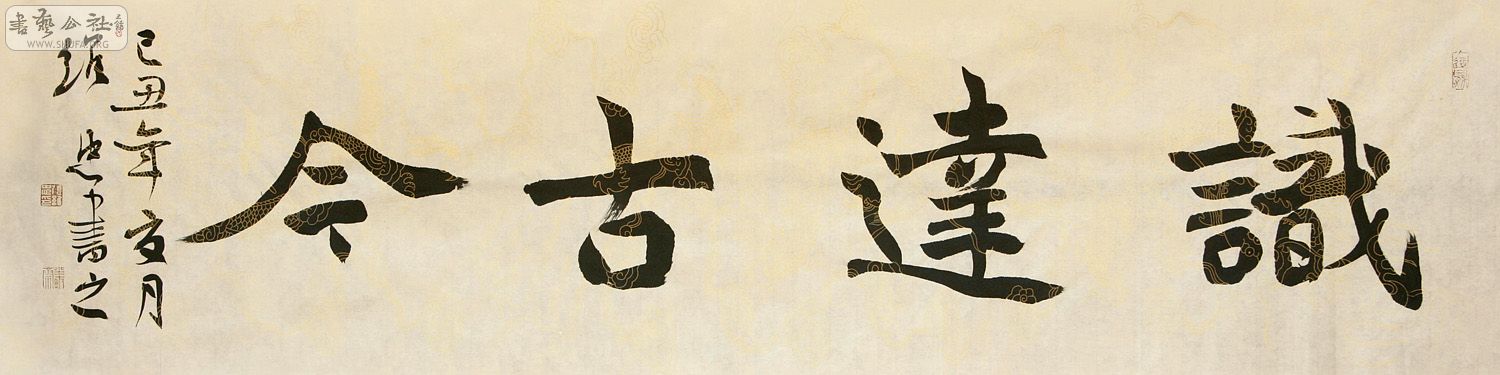 識達古今
己丑年亥月
書之
書藝公社
WWW.SHUFA.ORG